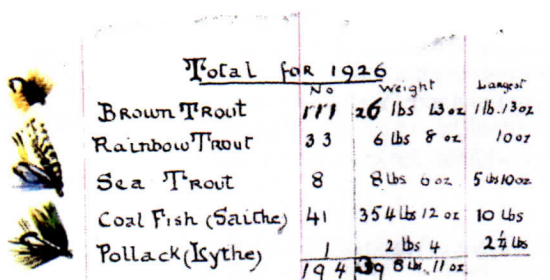 Total for 1926
No Weight Largest
Brown Trout 111 26 lbs 13 oz 1 lb. 13 oz
Rainbow Trout 33 6 lbs 8 oz 10 oz
Sea Trout 8 8 lbs 6 oz 5 lbs 10 oz
Coal Fish (Saithe) 41 354 lbs 12 oz 10 lbs
Pollack (Lythe) 1 2 lbs 4 2¼ lbs
194 398 lbs. 11 oz